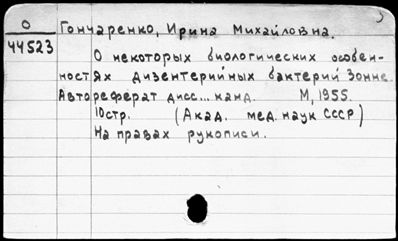 О
44523
Гончаренко, Ирина Михайловна.
О некоторых биологических особен-
ностях дизентерийных бактерий Зонне.
Автореферат дисс... канд. М, 1955.
10стр. (Акад. мед. наук СССР)
На правах рукописи.